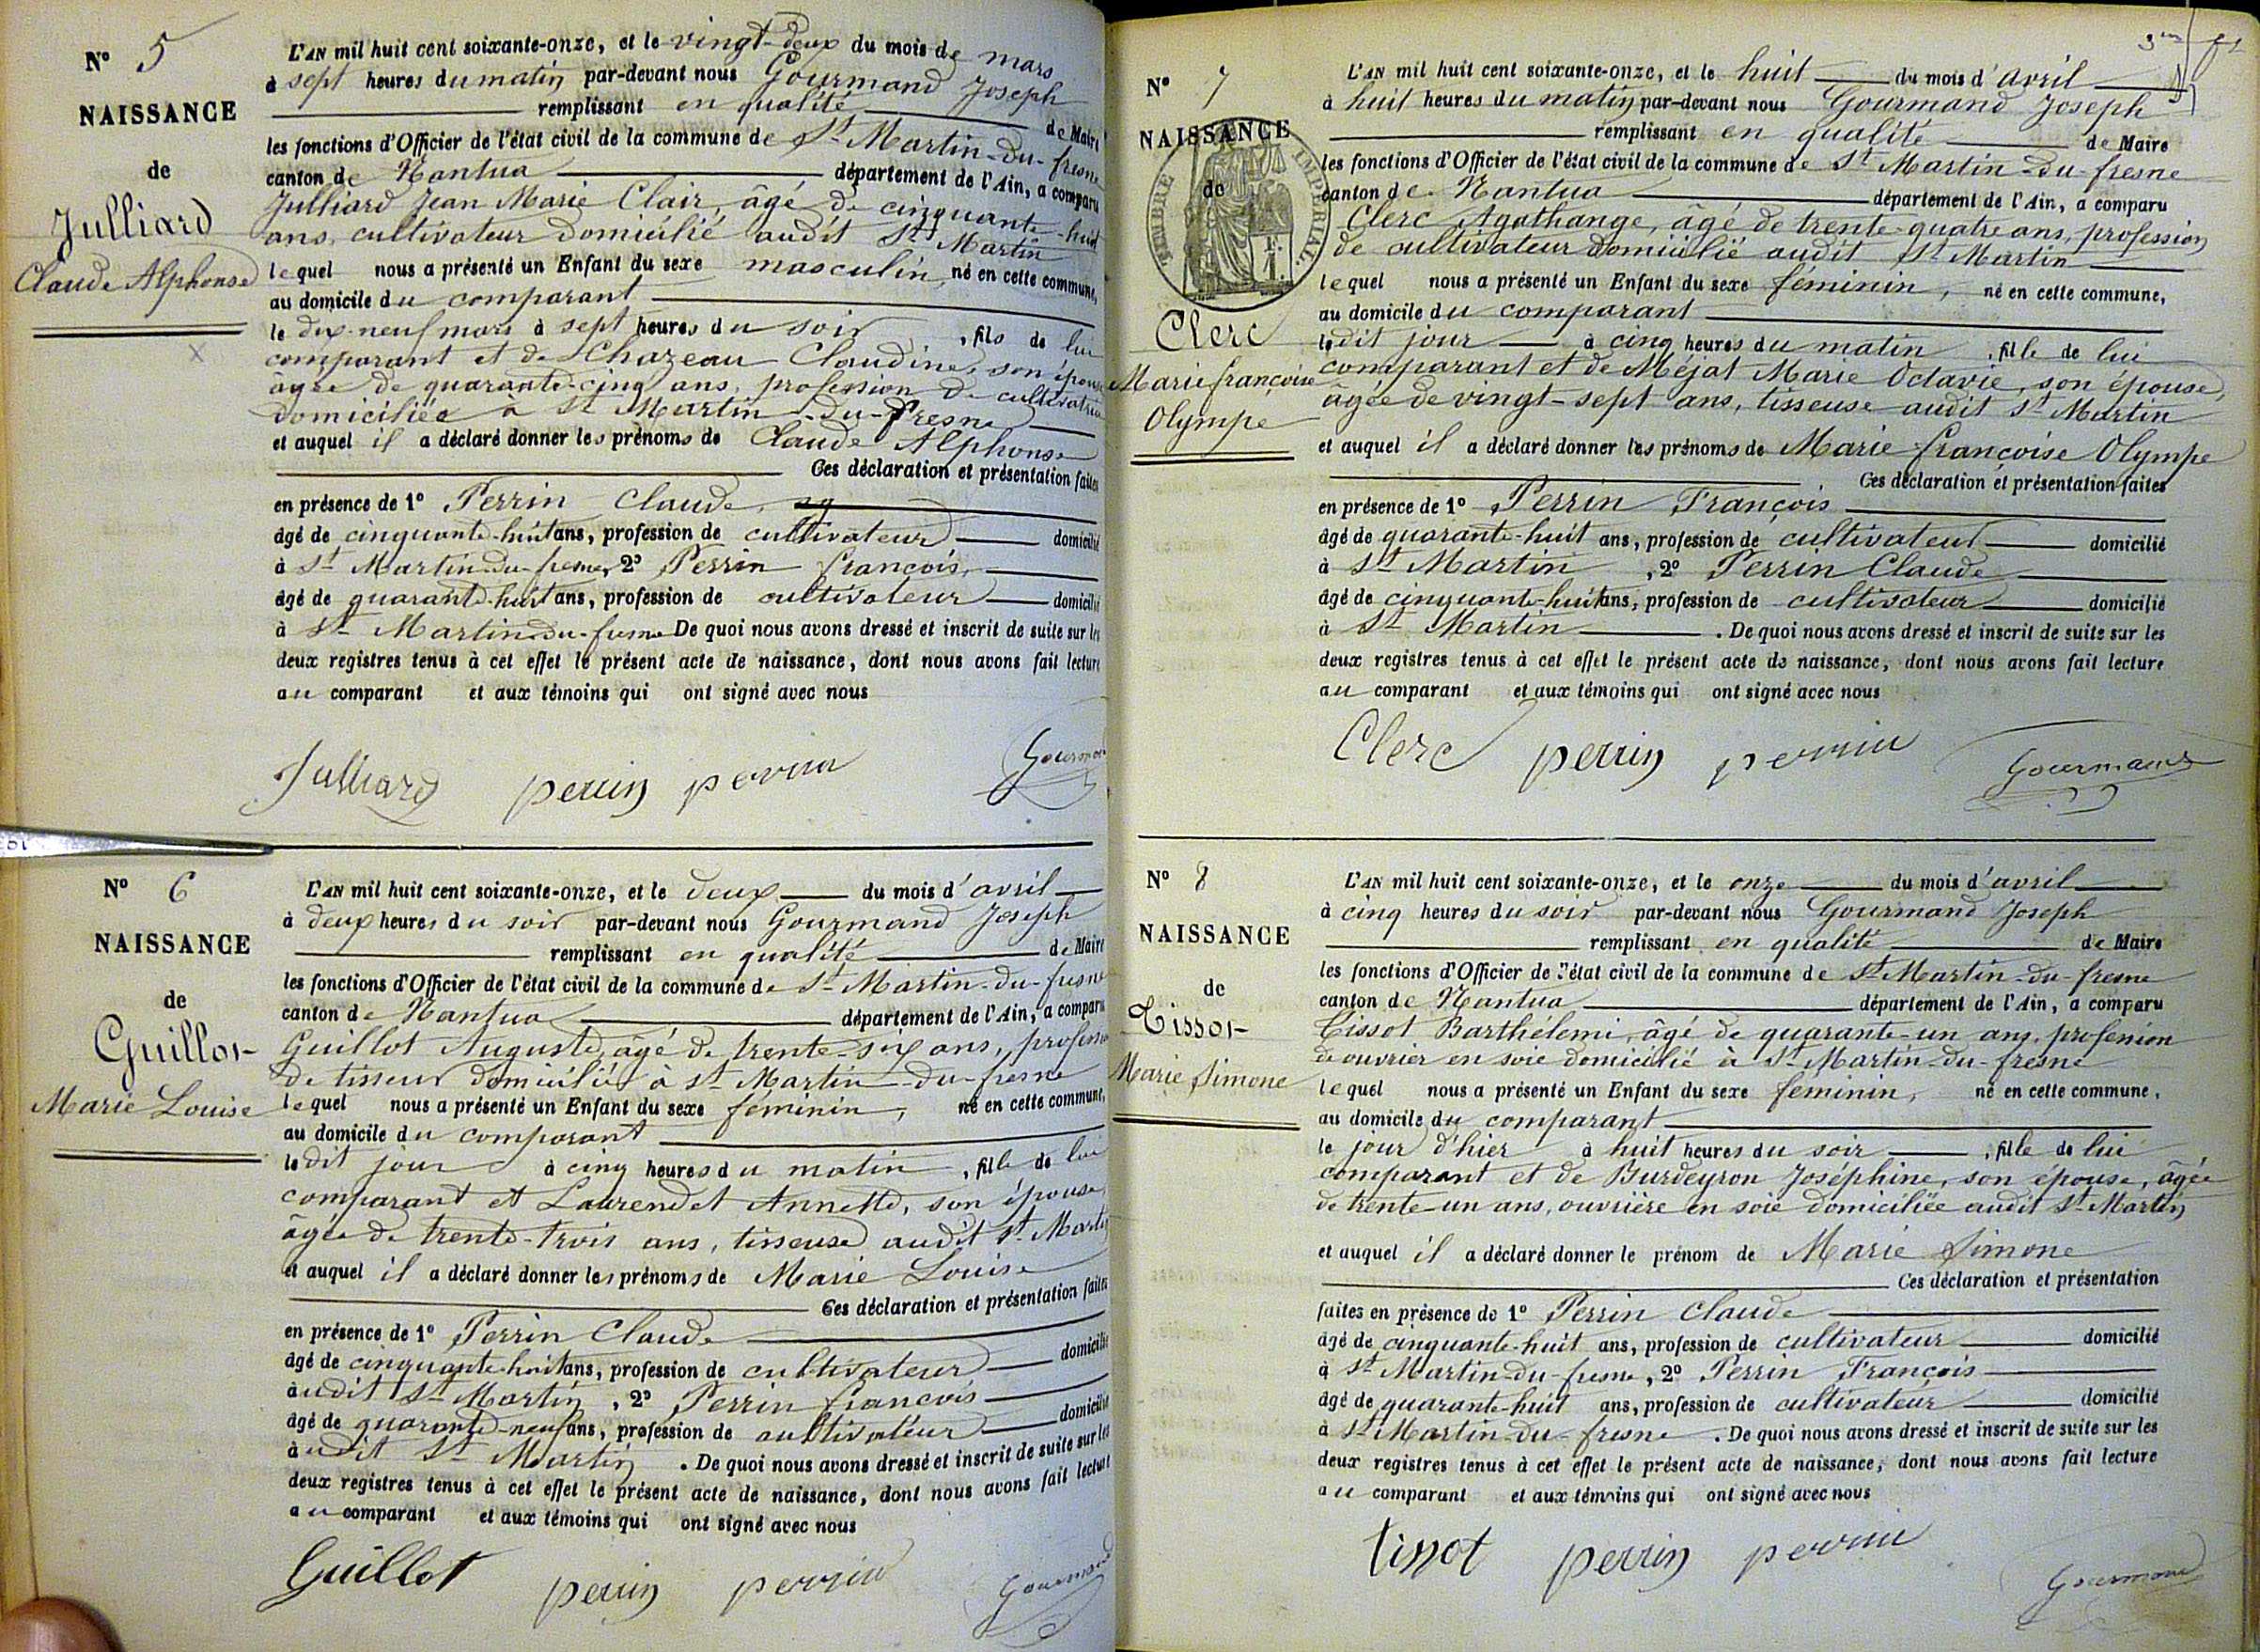 Nº 5
NAISSANCE
de
Julliard
Claude Alphonse
L'AN mil huit cent soixante-onze, et le vingt-deux du mois de mars
à sept heures du matin par-devant nous Gourmand Joseph
remplissant en qualité de Maire
les fonctions d'Officier de l'état civil de la commune de St Martin-du-fresne
canton de Nantua département de l'Ain, a comparu
Julliard Jean Marie Clair, âgé de cinquante-huit
ans, cultivateur domicilié audit St Martin
lequel nous a présenté un Enfant du sexe masculin, né en cette commune,
au domicile du comparant
le dix-neuf mars à sept heures du soir, fils de lui
comparant et de Chazeau Claudine, son épouse
âgée de quarante-cinq ans, profession de cultivatrice
domiciliée à St Martin-du-Fresne
et auquel il a déclaré donner les prénoms de Claude Alphonse
Ces déclaration et présentation faites
en présence de 1º Perrin Claude,
âgé de cinquante-huit ans, profession de cultivateur domicilié
à St Martin-du-fresne, 2º Perrin françois,
âgé de quarante-huit ans, profession de cultivateur domicilié
à St Martin-du-fresne De quoi nous avons dressé et inscrit de suite sur les
deux registres tenus à cet effet le présent acte de naissance, dont nous avons fait lecture
au comparant et aux témoins qui ont signé avec nous
Julliard perrin perrin Gourmand
Nº 6
NAISSANCE
de
Guillot
Marie Louise
L'AN mil huit cent soixante-onze, et le deux du mois d'avril
à deux heures du soir par-devant nous Gourmand Joseph
remplissant en qualité de Maire
les fonctions d'Officier de l'état civil de la commune de St Martin-du-fresne
canton de Nantua département de l'Ain, a comparu
Guillot Auguste, âgé de trente-six ans, profession
de tisseur domicilié à St Martin-du-fresne
lequel nous a présenté un Enfant du sexe féminin, né en cette commune,
au domicile du comparant
ledit jour à cinq heures du matin, fille de lui
comparant et Laurendet Annette, son épouse,
âgée de trente-trois ans, tisseuse audit St Martin
et auquel il a déclaré donner les prénoms de Marie Louise
Ces déclaration et présentation faites
en présence de 1º Perrin Claude
âgé de cinquante-huit ans, profession de cultivateur domicilié
audit St Martin, 2º Perrin francois
âgé de quarante-neuf ans, profession de cultivateur domicilié
audit St Martin. De quoi nous avons dressé et inscrit de suite sur les
deux registres tenus à cet effet le présent acte de naissance, dont nous avons fait lecture
au comparant et aux témoins qui ont signé avec nous
Guillot perrin perrin Gourmand
Nº 7
NAISSANCE
de
TIMBRE IMPERIAL.
Clerc
Marie françoise
Olympe
L'AN mil huit cent soixante-onze, et le huit du mois d'avril
à huit heures du matin par-devant nous Gourmand Joseph
remplissant en qualité de Maire
les fonctions d'Officier de l'état civil de la commune de St Martin-du-fresne
canton de Nantua département de l'Ain, a comparu
Clerc Agathange, âgé de trente-quatre ans, profession
de cultivateur domicilié audit St Martin
lequel nous a présenté un Enfant du sexe féminin, né en cette commune,
au domicile du comparant
ledit jour à cinq heures du matin, fille de lui
comparant et de Méjat Marie Octavie, son épouse,
âgée de vingt-sept ans, tisseuse audit St Martin
et auquel il a déclaré donner les prénoms de Marie françoise Olympe
Ces déclaration et présentation faites
en présence de 1º Perrin François
âgé de quarante-huit ans, profession de cultivateur domicilié
à St Martin, 2º Perrin Claude
âgé de cinquante-huit ans, profession de cultivateur domicilié
à St Martin. De quoi nous avons dressé et inscrit de suite sur les
deux registres tenus à cet effet le présent acte de naissance, dont nous avons fait lecture
au comparant et aux témoins qui ont signé avec nous
Clerc perrin perrin Gourmand
Nº 8
NAISSANCE
de
Tissot
Marie Simone
L'AN mil huit cent soixante-onze, et le onze du mois d'avril
à cinq heures du soir par-devant nous Gourmand Joseph
remplissant en qualité de Maire
les fonctions d'Officier de l'état civil de la commune de St Martin-du-fresne
canton de Nantua département de l'Ain, a comparu
Tissot Barthélemi, âgé de quarante-un ans, profession
de ouvrier en soie domicilié à St Martin-du-fresne
lequel nous a présenté un Enfant du sexe féminin, né en cette commune,
au domicile du comparant
le jour d'hier à huit heures du soir, fille de lui
comparant et de Burdeyron Joséphine, son épouse, âgée
de trente-un ans, ouvrière en soie domiciliée audit St Martin
et auquel il a déclaré donner le prénom de Marie Simone
Ces déclaration et présentation
faites en présence de 1º Perrin Claude
âgé de cinquante-huit ans, profession de cultivateur domicilié
à St Martin-du-fresne, 2º Perrin François
âgé de quarante-huit ans, profession de cultivateur domicilié
à St Martin-du-fresne. De quoi nous avons dressé et inscrit de suite sur les
deux registres tenus à cet effet le présent acte de naissance, dont nous avons fait lecture
au comparant et aux témoins qui ont signé avec nous
tissot perrin perrin Gourmand